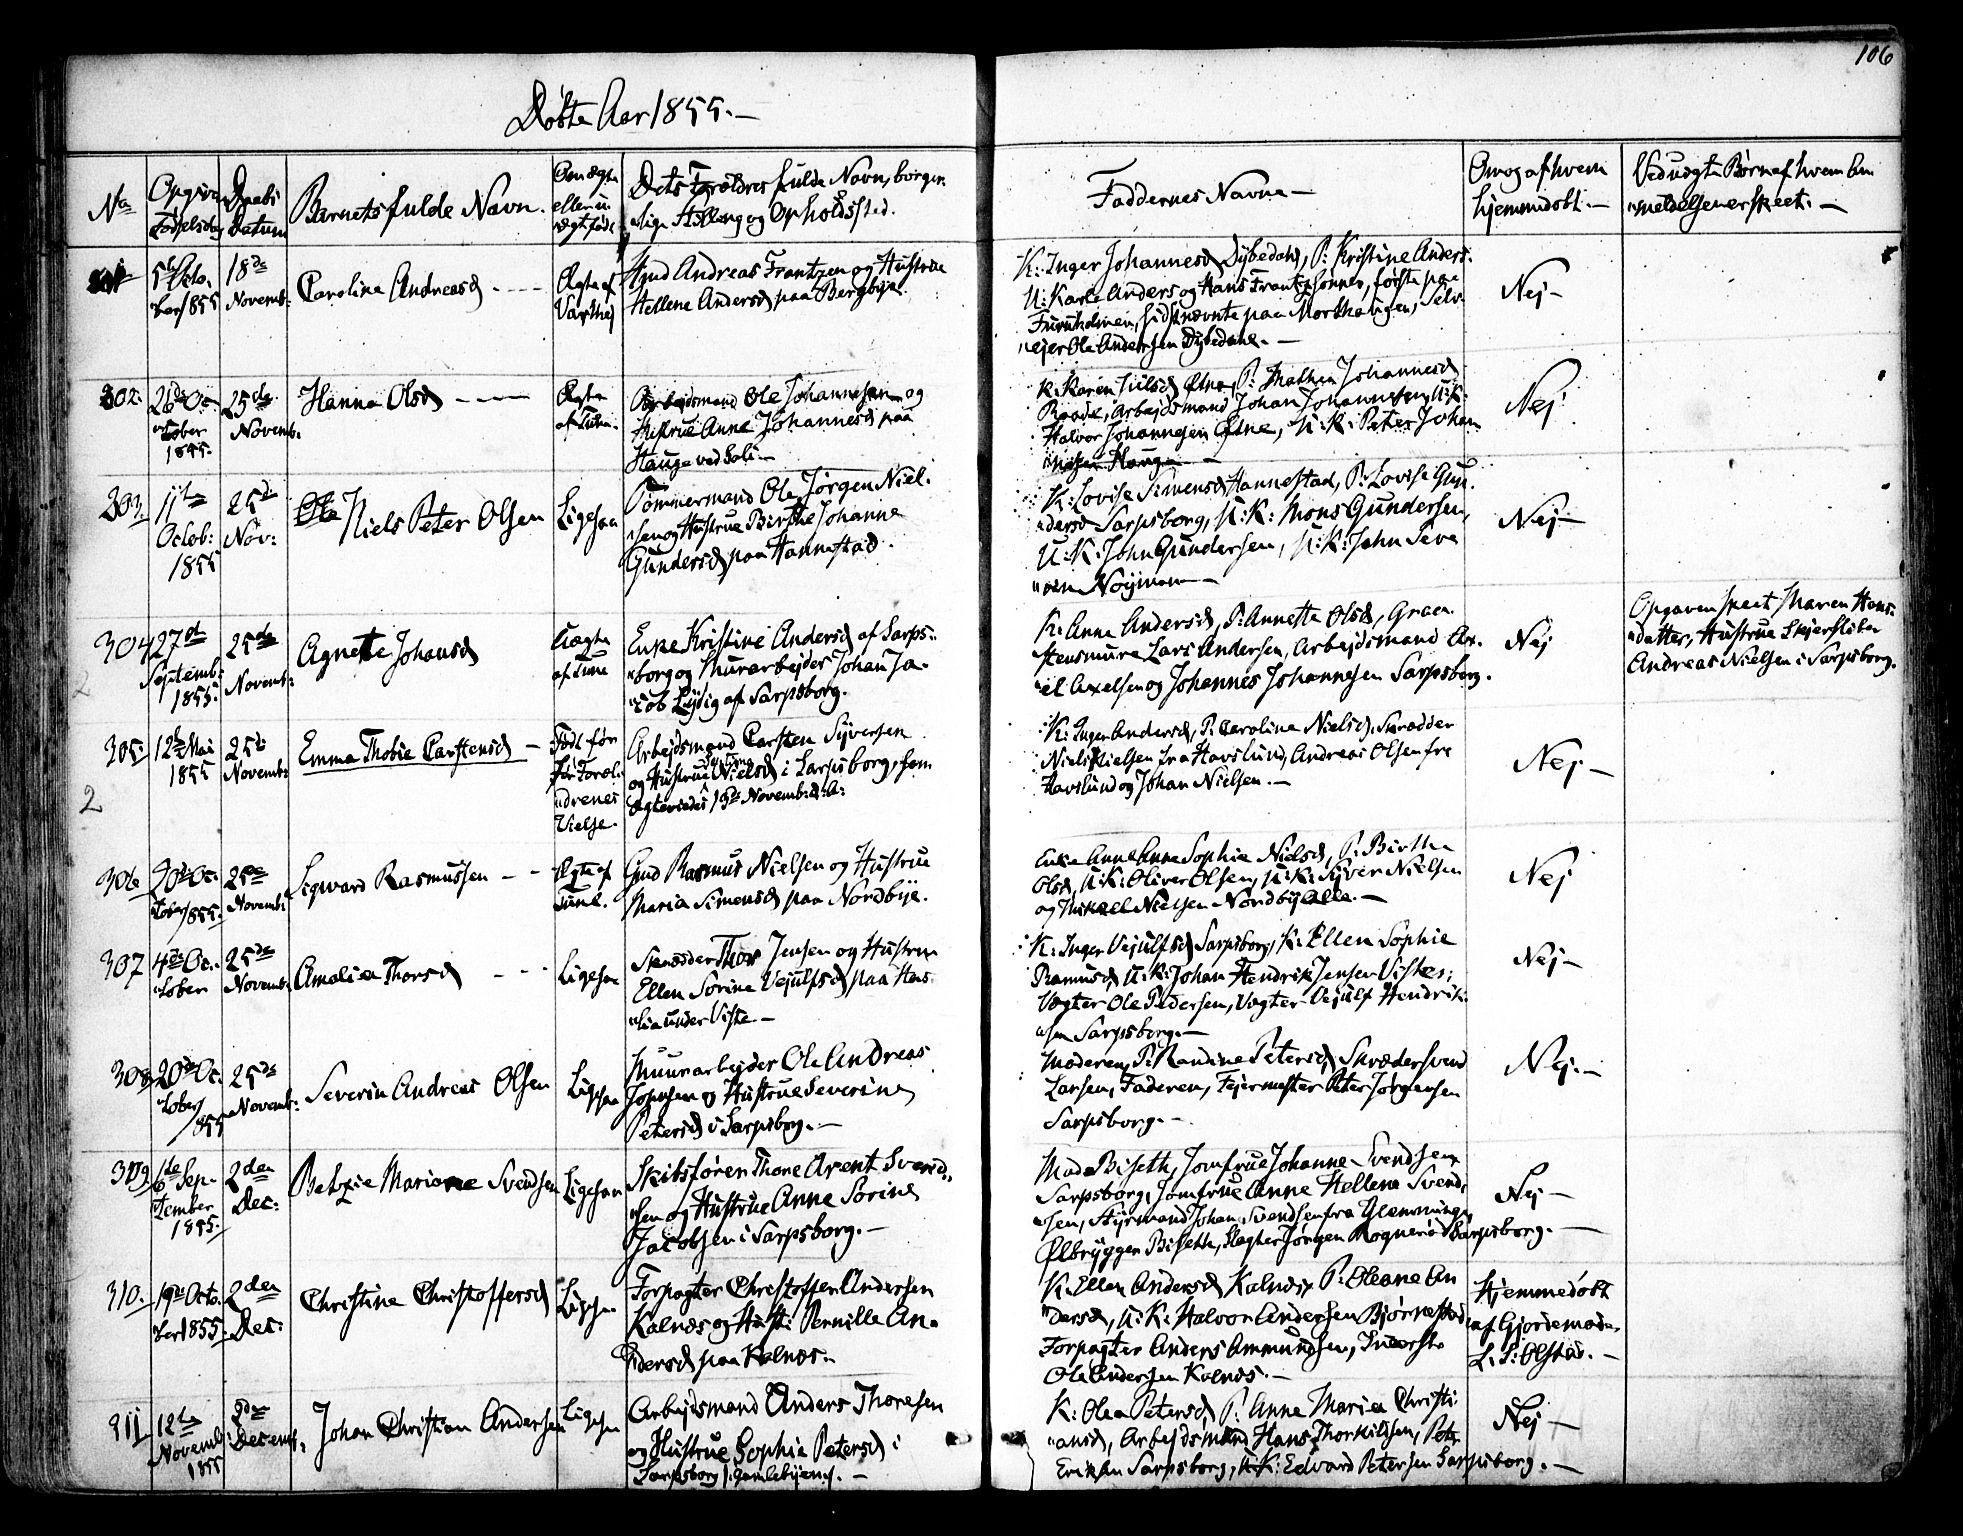 106
Døbte Aar 1855.—
No
Opgiven
Fødselsdag
Daabs
Datum
Barnets fulde Navn.
Om ægte
eller u-
ægte født
Dets Forældres fulde Navn, borger-
"lige Stilling og Opholdssted.
Faddernes Navne —
Om og af hvem
hjemmedøbt. —
Ved uægte Børn af hvem An-
"meldelsen er skeet. —
5te Octo-
"ber 1855
18de
Novemb:
Caroline Andreasd
Ægte af
Varteig
Gmd Andreas Frantzen og Hustrue
Hellene Andersd paa Bergbye.
K: Inger Johannesd Dybedahl, P: Kristine Anders-
U: Karle Anders og Hans Frantzsønner, første paa
Furuholmen, sidstnævnte paa Morthaugen, Selv-
"eier Ole Andersen Dybedahl. —
Nej —
302.
26de Oc-
"tober
1855.
25de
Novemb:
Hanna Olsd
Ægte
af Tune.
Arbejdsmand Ole Johannesen og
Hustrue Anne Johannesd paa
Hauge ved Soli —
K: Karen Juilsd Østne, P: Mathea Johannesd
Raade, Arbejdsmand Johan Johannesen, U: K:
Halvor Johannesen Østne, U: K: Peter Johan-
"nesen Hauge —
Nej
303.
11te
Octob:
1855
25de
Nov:
Niels Peter Olsen
Ligesaa
Tømmermand Ole Jørgen Niel-
"sen og Hustrue Birthe Johanne
Gundersd paa Hannestad.
K: Lovise Simensd Hannestad, P: Lovise Gun-
"dersd Sarpsborg, U: K: Mons Gundersen,
U: K: John Gundersen, U: K: John Seve-
"rin Noijmann —
Nej —
304
27de
Septemb:
1855.
25de
Novemb:
Agnette Johansd
Uægte
af Tune
Enke Kristine Andersd af Sarps-
"borg og Muurarbejder Johan Ja-
"cob Lydig af Sarpsborg.
K: Anna Andersd, P: Annette Olsd, Graa-
steensmure Lars Andersen, Arbejdsmand Ax-
"el Axelsen og Johannes Johannesen Sarpsborg.
Nej
Opgaven skeet Maren Hans-
"datter, Hustrue Skjersliber
Andreas Nielsen i Sarpsborg.
305.
12te Mai
1855
25de
Novemb:
Emma Thobie Carstensd —
Født før
før Foræl-
"drenes
Vielse.
Arbejdsmand Carsten Syversen
og Hustrue Nielsd i Sarpsborg, som
ægteviedes 18de Novemb: d: A:
K: Inger Andersd, P: Caroline Nielsd, Skrædder
Niels Nielsen fra Havslund, Andreas Olsen fra
Havslund og Johan Nielsen. —
Nej. —
2
306
20de Oc-
"tober 1855.
25de
Novemb:
Sigvard Rasmussen
Ægte af
Tune.
Gmd Rasmus Nielsen og Hustrue
Maria Simensd paa Nordbye.
Enke Anne Anne Sophie Nielsd, P: Birthe
Olsd, U: K: Oliver Olsen, U: K: Syver Nielsen
og Mikael Nielsen Nordby Alle. —
Nej
307
4de Oc-
"tober
25de
Novemb:
Amalia Thorsd
Ligesaa
Skrædder Thor Jensen og Hustrue
Ellen Sorine Vejulfsd paa Has-
"lia under Viste —
K: Inger Vejulfsd Sarpsborg, K: Ellen Sophie
Rasmusd U: K: Johan Hendrik Jensen Visten,
Vægter Ole Pedersen, Vægter Vejulf Hendrik-
"sen Sarpsborg. —
Nej —
308
20de Oc-
"tober
1855
25de
Novemb:
Severin Andreas Olsen
Ligesaa
Muurarbejder Ole Andreas
Johnsen og Hustrue Severine
Petersd i Sarpsborg. —
Moderen, P: Randine Petersd, Skrædersvend
Larsen, Faderen, Fejermester Peter Jørgensen
Sarpsborg. —
Nej. —
309
6te Sep-
"tember
1855.
2den
Dec:
Betzie Mariane Svendsen
Ligesaa
Skibsfører Thore Arent Svend-
"sen og Hustrue Anne Sorine
Jacobsen i Sarpsborg. —
Mada Biseth, Jomfrue Johanne Svendsen
Sarpsborg, Jomfrue Anne Hellene Svend-
"sen, Styrmand Johan Svendsen fra Glemminge,
Ølbrygger Biseth, Slagter Jørgen Rognerød Sarpsborg. —
Nej —
310.
19de Octo-
"ber 1855.
2den
Dec:
Christine Christoffersd
Ligesaa
Forpagter Christoffer Andersen
Kalnæs og Hustr: Pernille An-
"dersd paa Kalnæs. —
K: Ellen Andersd Kalnæs, P: Oleane An-
"dersd, U: K: Halvor Andersen Bjørnestad,
Forpagter Anders Ammundsen, Inderste
Ole Andersen Kalnæs. —
Hjemmedøbt
af Gjordemoder
L. S: Olstad. —
311
12te
Novemb:
1855
2den
Decemb:
Johan Christian Andersen
Ligesaa
Arbejdsmand Anders Thoresen
og Hustrue Sophie Petersd i
Sarpsborg /: Gamlebyen :/. —
K: Olea Petersd, P: Anne Maria Christi-
"ansd, Arbejdsmand Hans Thorkildsen, Peter
Eriksen Sarpsborg, U: K: Edvard Petersen Sarpsborg. —
Nej —